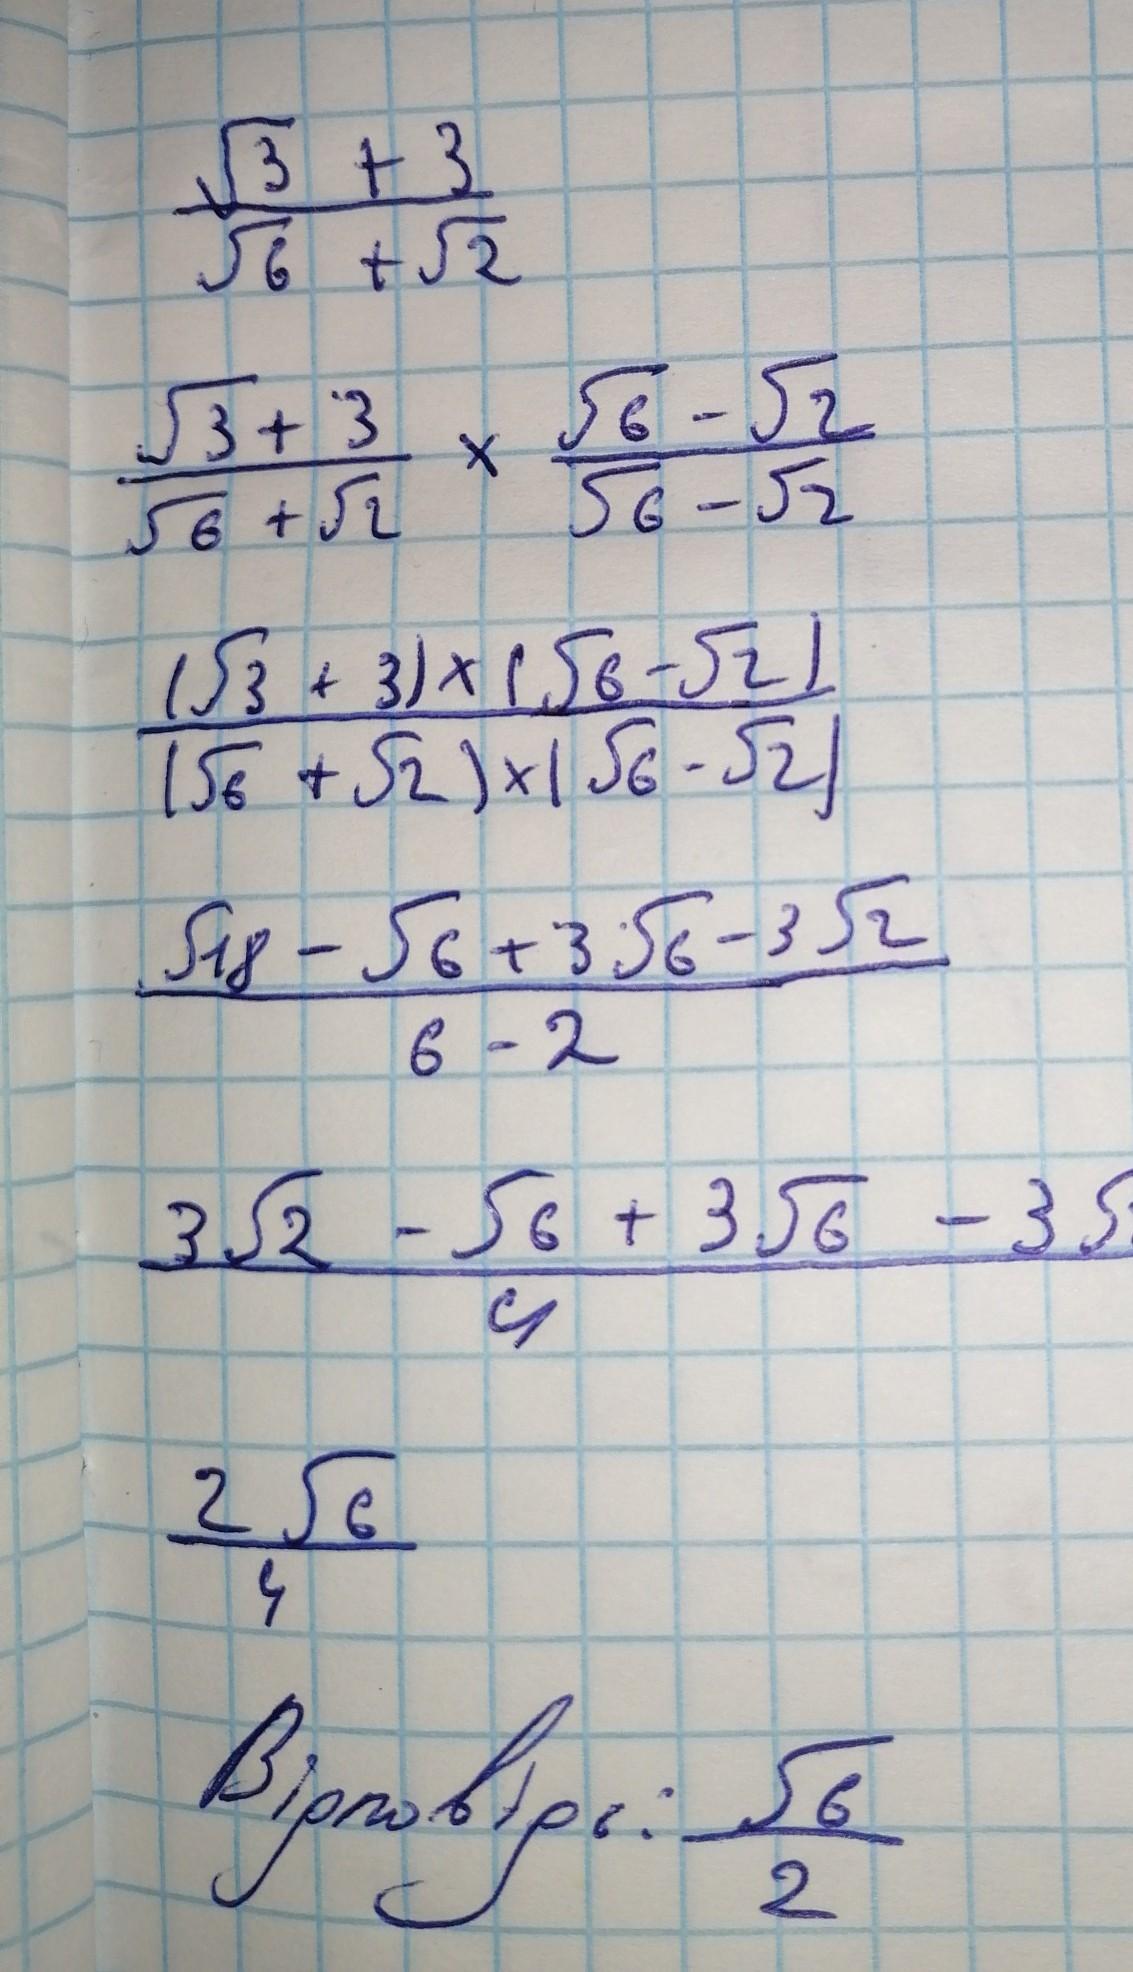 √3 + 3
√6 + √2
√3 + 3 × √6 - √2
√6 + √2 √6 - √2
(√3 + 3) × (√6 - √2)
(√6 + √2) × (√6 - √2)
√18 - √6 + 3√6 - 3√2
6 - 2
3√2 - √6 + 3√6 - 3√
4
2√6
4
Відповідь: √6
2